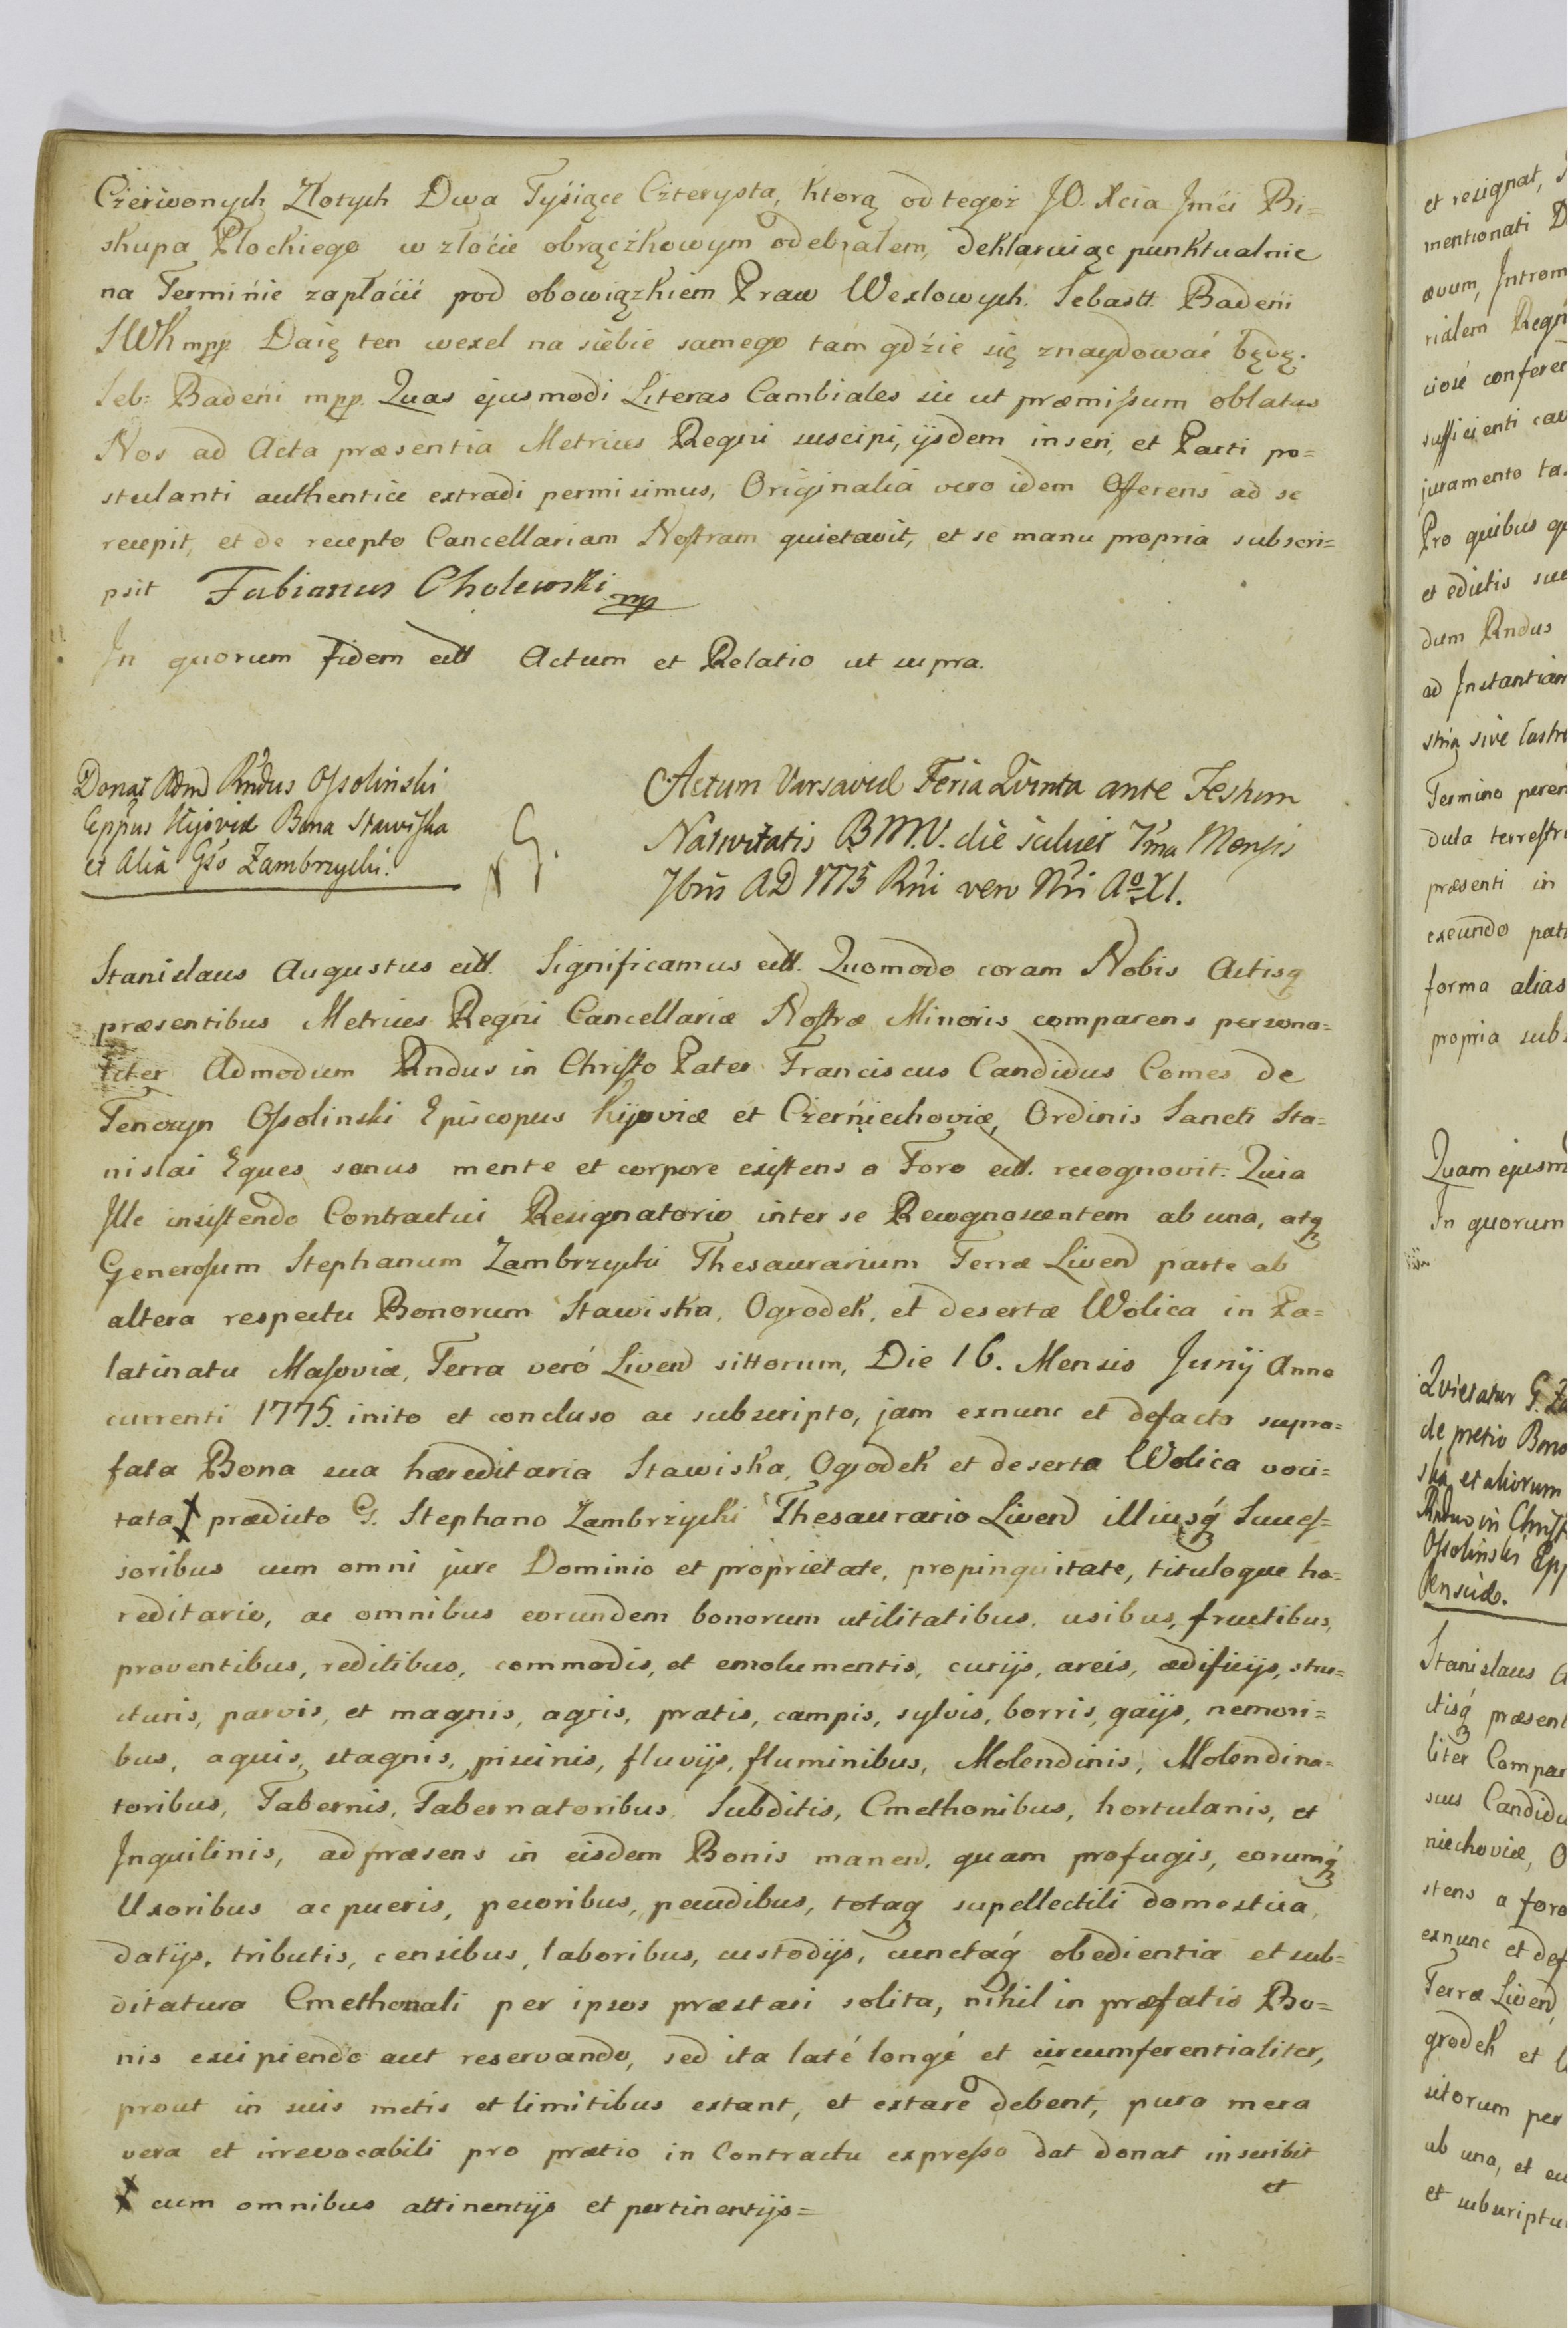 Czerwonych Złotych Dwa Tysiące Czterysta, ktorą od tegoż JO. Xcia Jmći Bi=
skupa Płockiego w złoćie obrączkowym odebrałem, deklaruiąc punktualnie
na Terminie zapłaćić pod obowiązkiem Praw Wexlowych. Sebastt. Badeni
SWK mpp. Daię ten wexel na siebie samego tam gdzie się znaydować będę.
Seb: Badeni mpp. Quas ejusmodi Literas Cambiales sic ut præmissum oblatas
Nos ad Acta præsentia Metrices Regni suscipi, ijsdem inseri, et Parti po=
stulanti authentice extradi permisimus, Originalia vero idem Offerens ad se
recepit, et de recepto Cancellariam Nostram quietavit, et se manu propria subscri=
psit Fabianus Cholewski mp
In quorum fidem ett Actum et Relatio ut supra.
Donat Admd Rndus Ossolinski
Eppus Kijoviæ Bona Stawiska
et Alia Gso Zambrzycki.
Actum Varsaviæ Feria Qvinta ante Festum
Nativitatis B.M.V. die scilicet 7ma Mensis
7bris AD 1775 Rni vero Nri Ao XI.
Stanislaus Augustus ett. Significamus ett. Quomodo coram Nobis Actisq
præsentibus Metrices Regni Cancellariæ Nostræ Minoris comparens persona=
liter Admodum Rndus in Christo Pater Franciscus Candidus Comes de
Tenczyn Ossolinski Episcopus Kijoviæ et Czerniechoviæ, Ordinis Sancti Sta=
nislai Eques sanus mente et corpore existens a Foro ett. recognovit: Quia
Ille insistendo Contractui Resignatorio inter se Recognoscentem ab una, atq
Generosum Stephanum Zambrzycki Thesaurarium Terræ Livend parte ab
altera respectu Bonorum Stawiska, Ogrodek, et desertæ Wolica in Pa=
latinatu Masoviæ, Terra veró Livend sittorum, Die 16. Mensis Junij Anno
currenti 1775. inito et concluso ac subscripto, jam exnunc et defacto supra=
fata Bona sua hæreditaria Stawiska, Ogrodek et deserta Wolica voci=
tata X prædicto G. Stephano Zambrzycki Thesaurario Livend illiusq́ Succes=
soribus cum omni jure Dominio et proprietate, propinquitate, tituloque hæ=
reditario, ac omnibus eorundem bonorum utilitatibus, usibus, fructibus,
proventibus, reditibus, commodis, et emolumentis, curijs, areis, ædificijs, stru=
cturis, parvis, et magnis, agris, pratis, campis, sylvis, borris, gaijs, nemori=
bus, aquis, stagnis, piscinis, fluvijs, fluminibus, Molendinis, Molendina=
toribus, Tabernis, Tabernatoribus, Subditis, Cmethonibus, hortulanis, et
Inquilinis, ad præsens in eisdem Bonis manend, quam profugis, eorumq́
Uxoribus ac pueris, pecoribus, pecudibus, totaq supellectili domestica,
datijs, tributis, censibus, laboribus, custodijs, cunctaq́ obedientia et sub=
ditatura Cmethonali per ipsos præstari solita, nihil in præfatis Bo=
nis excipiendo aut reservando, sed ita laté longé et circumferentialiter,
prout in suis metis et limitibus extant, et extare debent, pura mera
vera et irrevocabili pro prætio in Contractu expresso dat donat inscribit
et
X cum omnibus attinentijs et pertinentijs=
et resignat,
mentionati
ævum, Introm
rialem Regn
ciosé confere
sufficienti cau
juramento ta
Pro quibus
et edictis
dum Rndus
ad Instantiam
sive Castr
Termino peren
duta terrestri
præsenti in
exeundo pat
forma alias
propria subs
Quam ejusm
In quorum
Qvietatur G. Za
de pretio Bono
ska et aliorum
Rndus in Christ
Ossolinski Ep
Stanislaus A
ctisq́ præsent
liter Compar
sus Candidu
niechoviæ, O
stens a foro
exnunc et def
Terræ Livend
grodek et
sitorum per
ab una, et
et subscriptu